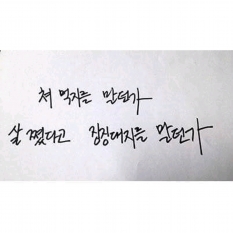 쳐 먹지를 말던가
살 쪘다고 징징대지를 말던가